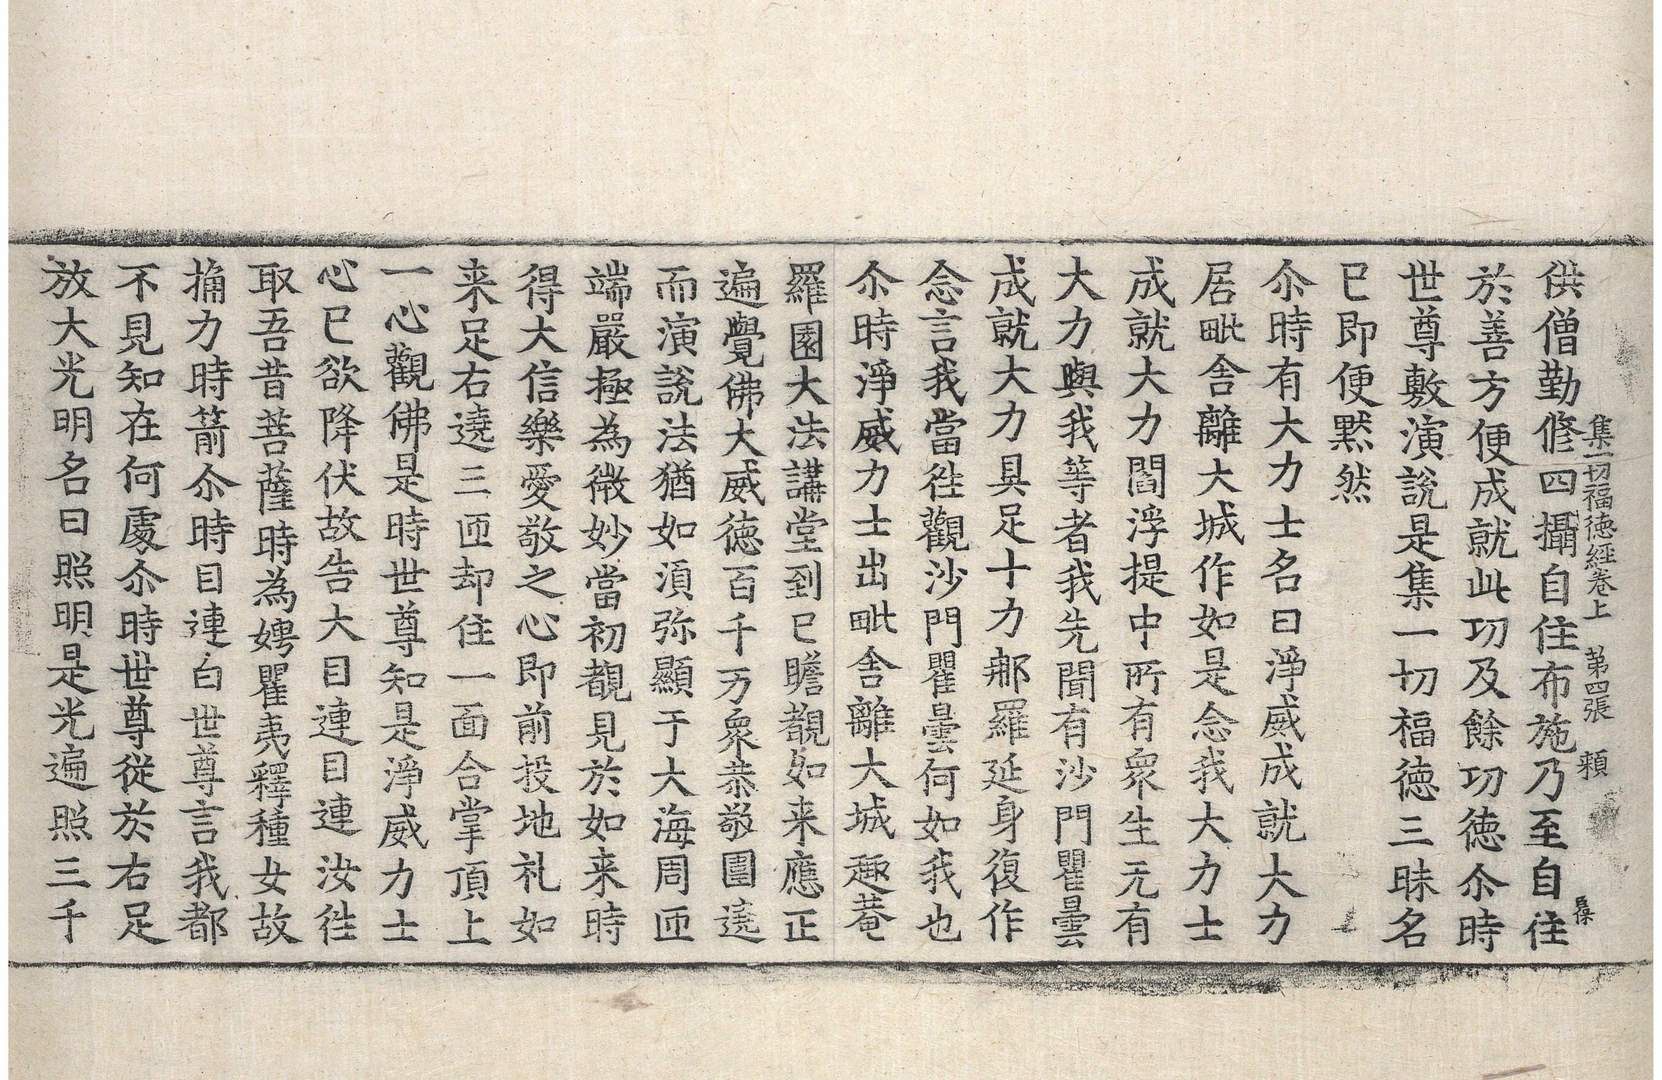 集一切福德經卷上 第四張 頛
供僧勤修四攝自住布施乃至自住
於善方便成就此功及餘功德尒時
世尊敷演說是集一切福德三昧名
已即便默然
尒時有大力士名曰淨威成就大力
居毗舍離大城作如是念我大力士
成就大力閻浮提中所有衆生无有
大力與我等者我先聞有沙門瞿曇
成就大力具足十力那羅延身復作
念言我當往觀沙門瞿曇何如我也
尒時淨威力士出毗舍離大城趣菴
羅園大法講堂到已瞻覩如来應正
遍覺佛大威德百千万衆恭敬圍遶
而演說法猶如湏弥顯于大海周匝
端嚴極為微妙當初覩見於如来時
得大信樂愛敬之心即前投地礼如
来足右遶三匝却住一面合掌頂上
一心觀佛是時世尊知是淨威力士
心已欲降伏故告大目連目連汝往
取吾昔菩薩時為娉瞿夷釋種女故
捔力時箭尒時目連白世尊言我都
不見知在何處尒時世尊從於右足
放大光明名曰照明是光遍照三千